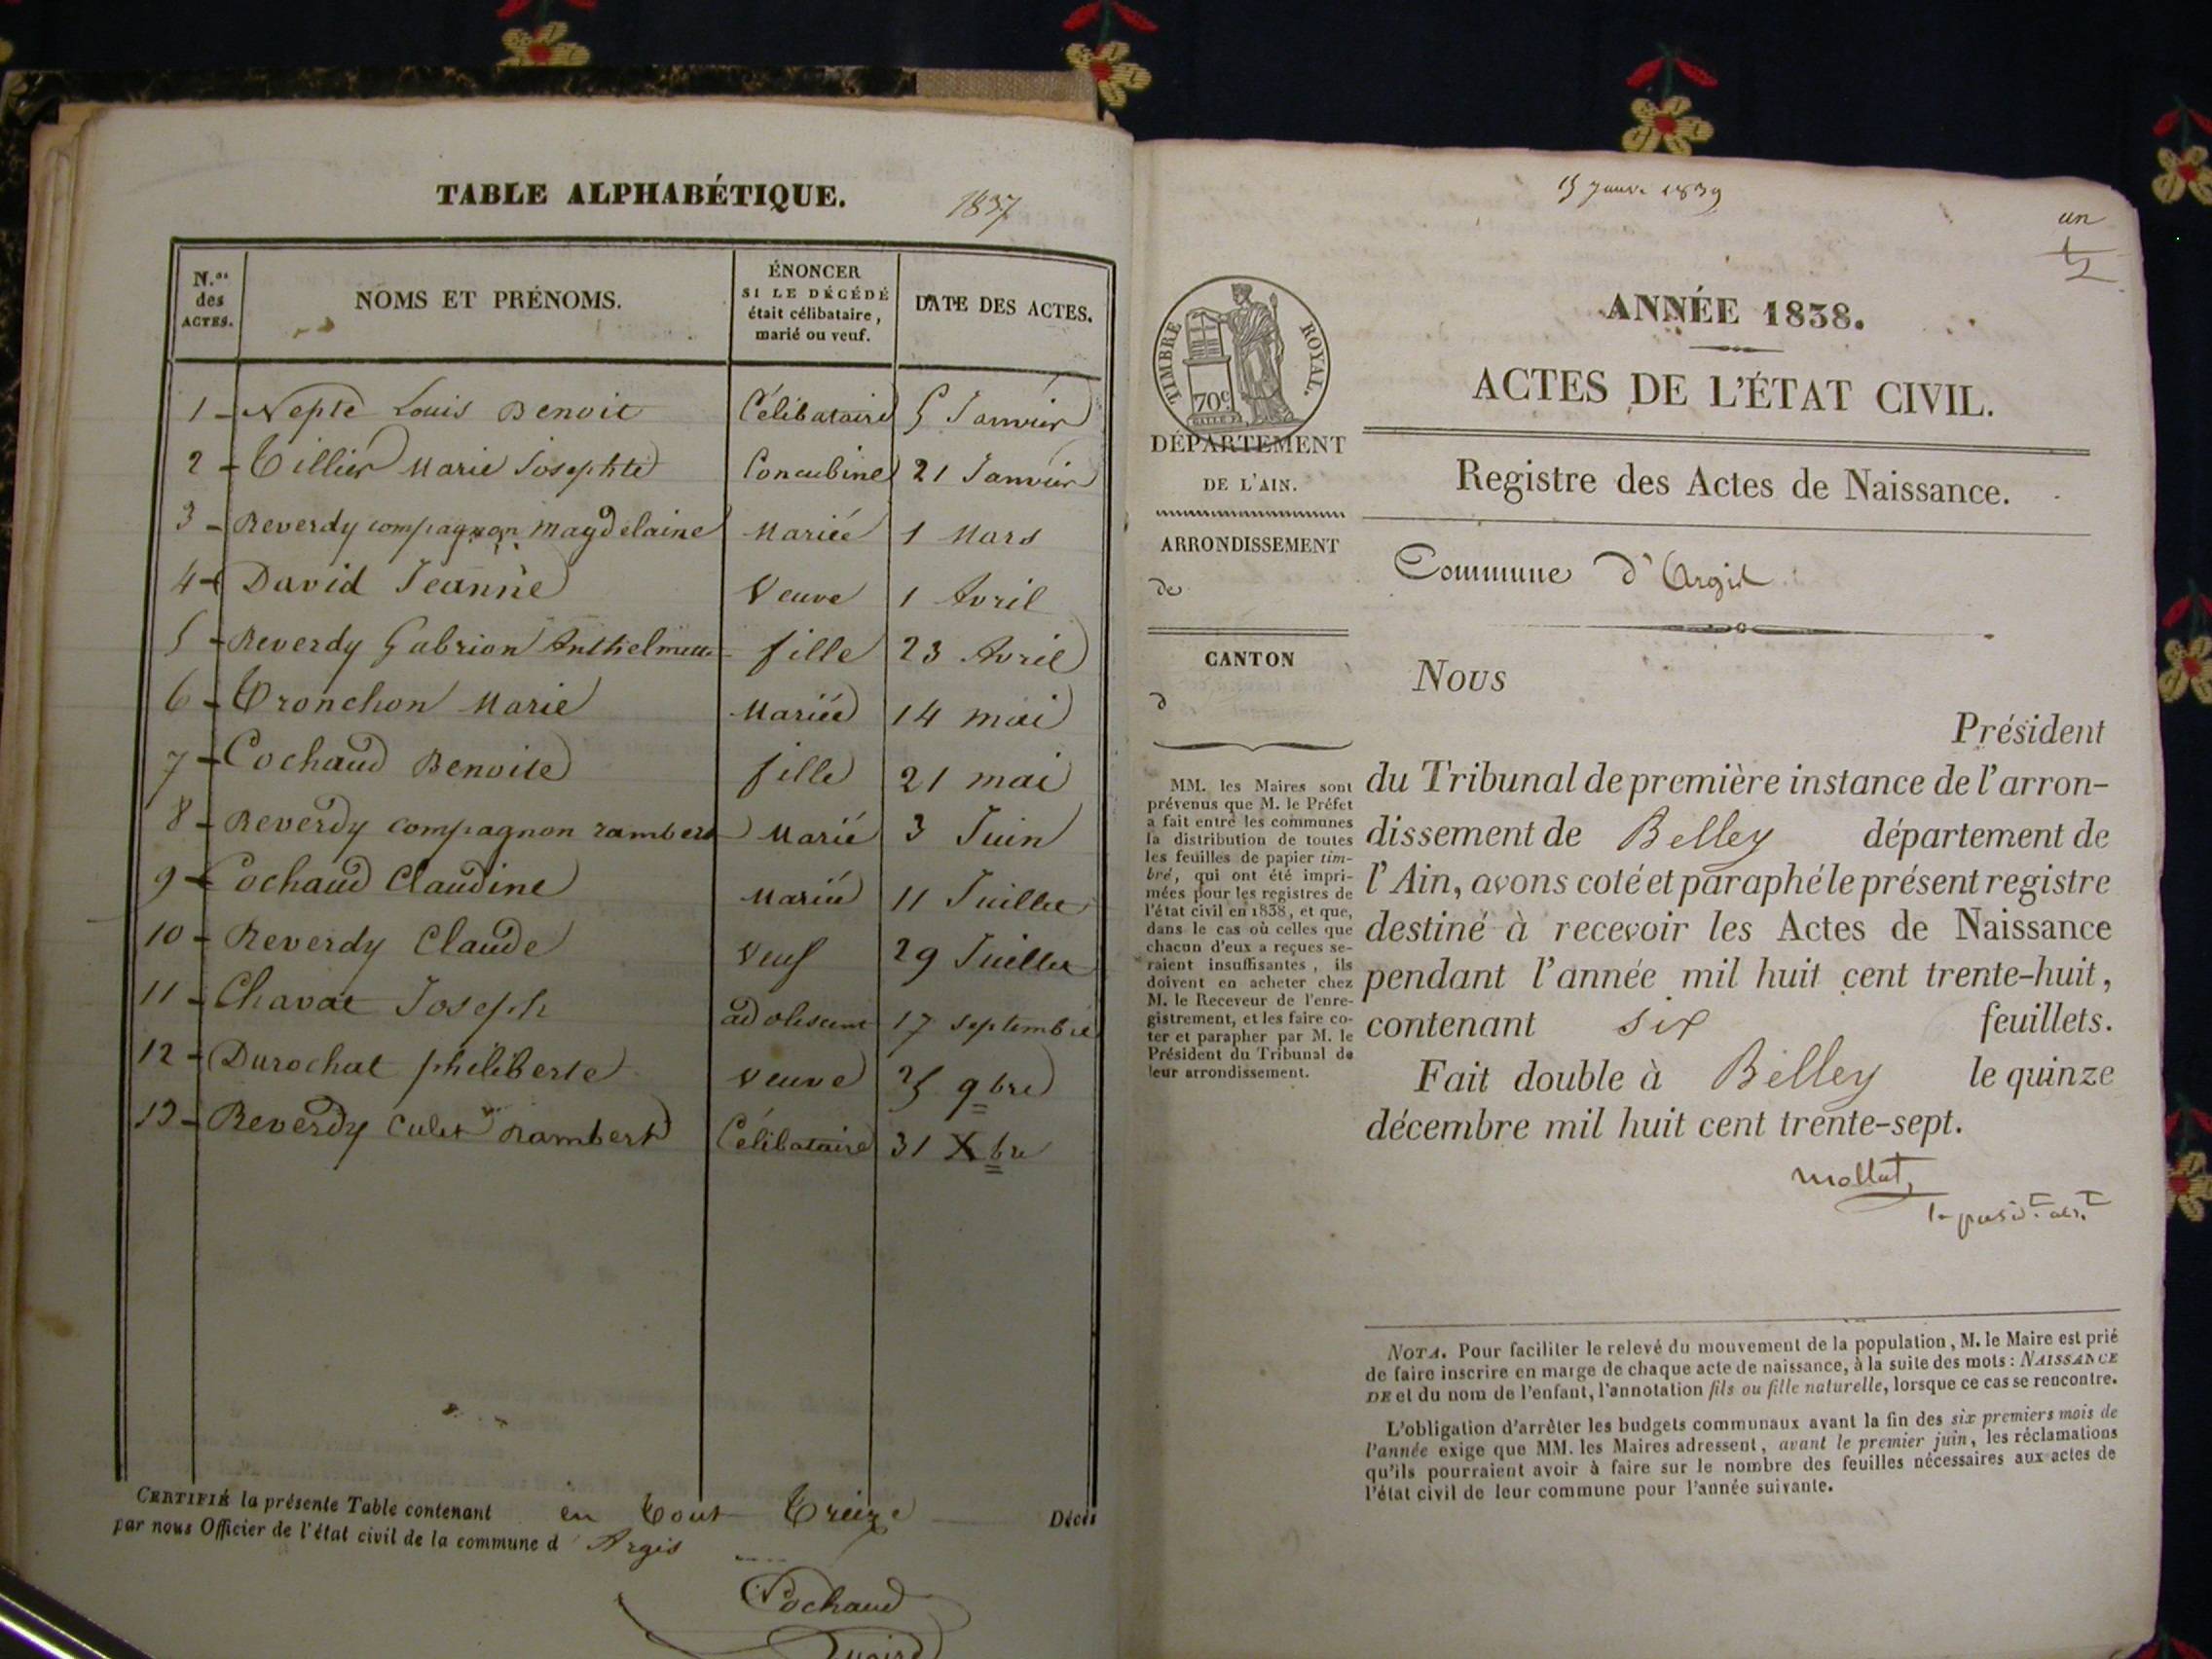 TABLE ALPHABÉTIQUE.
1837
N.os des ACTES.
NOMS ET PRÉNOMS.
ÉNONCER
SI LE DÉCÉDÉ
était célibataire,
marié ou veuf.
DATE DES ACTES.
1 - Nepte Louis Benoit Célibataire 5 Janvier
2 - Tillier Marie Josephte Concubine 21 Janvier
3 - Reverdy compagnon Magdelaine Mariée 1 Mars
4 - David Jeanne Veuve 1 Avril
5 - Reverdy Gabrion fille 23 Avril
6 - Tronchon Marie Mariée 14 mai
7 - Cochaud Benoite fille 21 mai
8 - Reverdy compagnon rambert Marié 3 Juin
9 - Cochaud Claudine Mariée 11 Juillet
10 - Reverdy Claude Veuf 29 Juillet
11 - Chavat Joseph adolescent 17 septembre
12 - Durochat philiberte Veuve 25 9bre
13 - Reverdy Culet Rambert Célibataire 31 Xbre
CERTIFIÉ la présente Table contenant en tout treize Décès
par nous Officier de l'état civil de la commune d'Argis
Cochaud
15 janv. 1839
un
TIMBRE ROYAL.
70c
DÉPARTEMENT
DE L'AIN.
ARRONDISSEMENT
de
CANTON
d
MM. les Maires sont
prévenus que M. le Préfet
a fait entre les communes
la distribution de toutes
les feuilles de papier tim-
bré, qui ont été impri-
mées pour les registres de
l'état civil en 1838, et que,
dans le cas où celles que
chacun d'eux a reçues se-
raient insuffisantes, ils
doivent en acheter chez
M. le Receveur de l'enre-
gistrement, et les faire co-
ter et parapher par M. le
Président du Tribunal de
leur arrondissement.
ANNÉE 1838.
ACTES DE L'ÉTAT CIVIL.
Registre des Actes de Naissance.
Commune d'Argis
Nous
Président
du Tribunal de première instance de l'arron-
dissement de Belley département de
l'Ain, avons coté et paraphé le présent registre
destiné à recevoir les Actes de Naissance
pendant l'année mil huit cent trente-huit,
contenant six feuillets.
Fait double à Belley le quinze
décembre mil huit cent trente-sept.
Mollet,
NOTA. Pour faciliter le relevé du mouvement de la population, M. le Maire est prié
de faire inscrire en marge de chaque acte de naissance, à la suite des mots: NAISSANCE
DE et du nom de l'enfant, l'annotation fils ou fille naturelle, lorsque ce cas se rencontre.
L'obligation d'arrêter les budgets communaux avant la fin des six premiers mois de
l'année exige que MM. les Maires adressent, avant le premier juin, les réclamations
qu'ils pourraient avoir à faire sur le nombre des feuilles nécessaires aux actes de
l'état civil de leur commune pour l'année suivante.